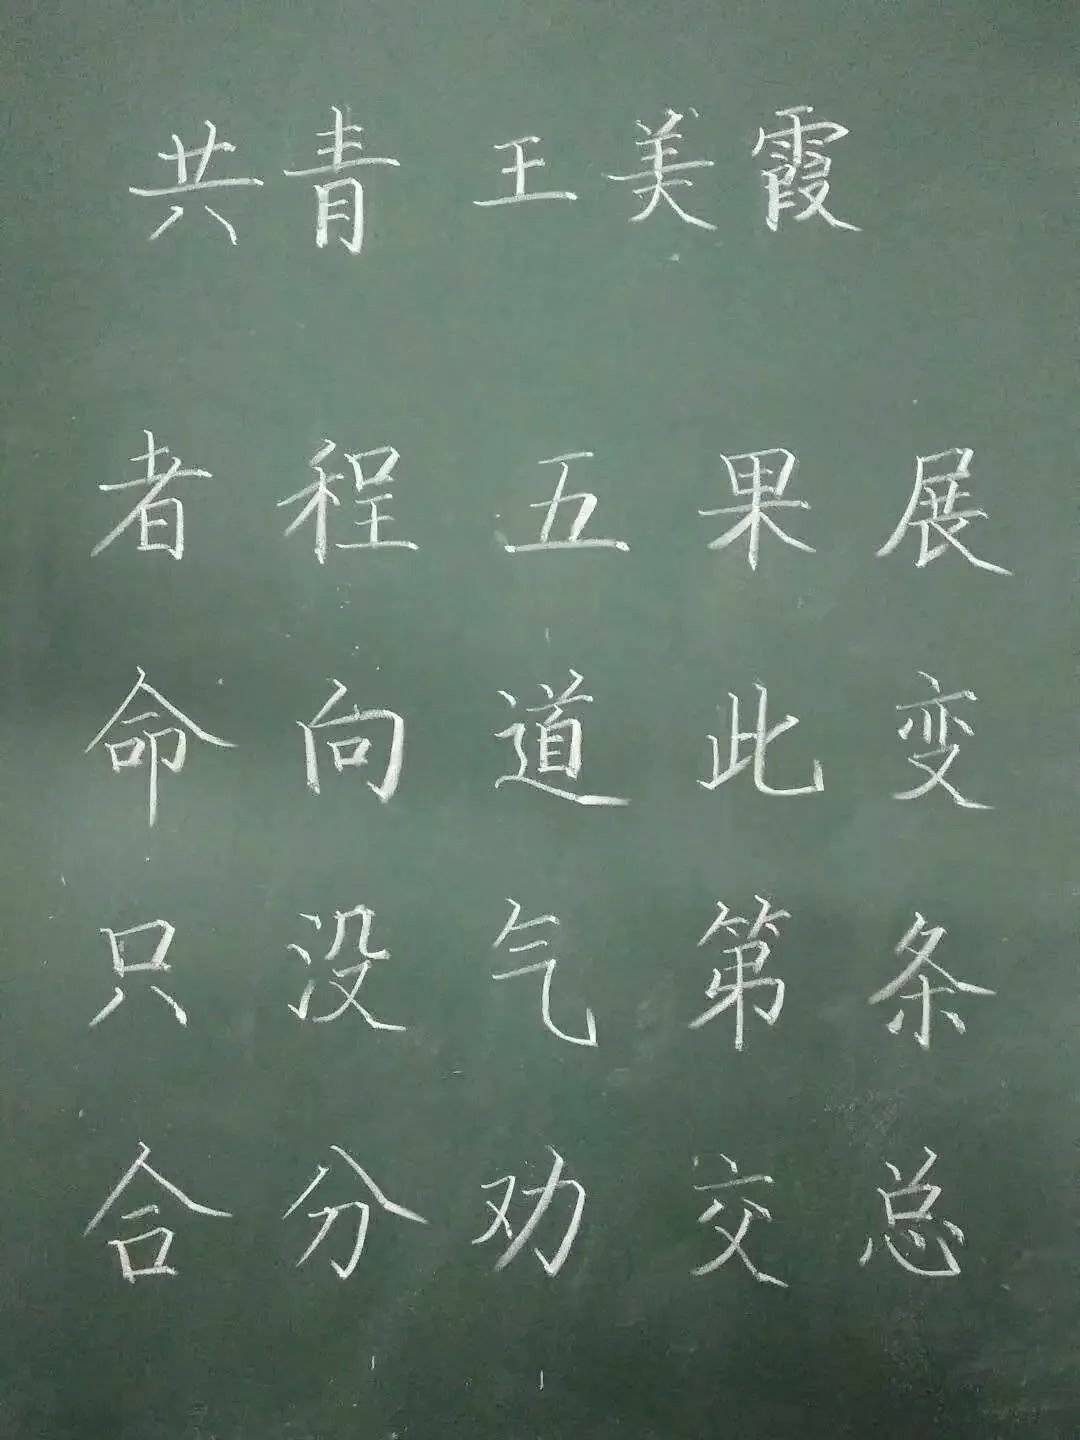 共青 王美霞
者程五果展
命向道此变
只没气第条
合分劝交总